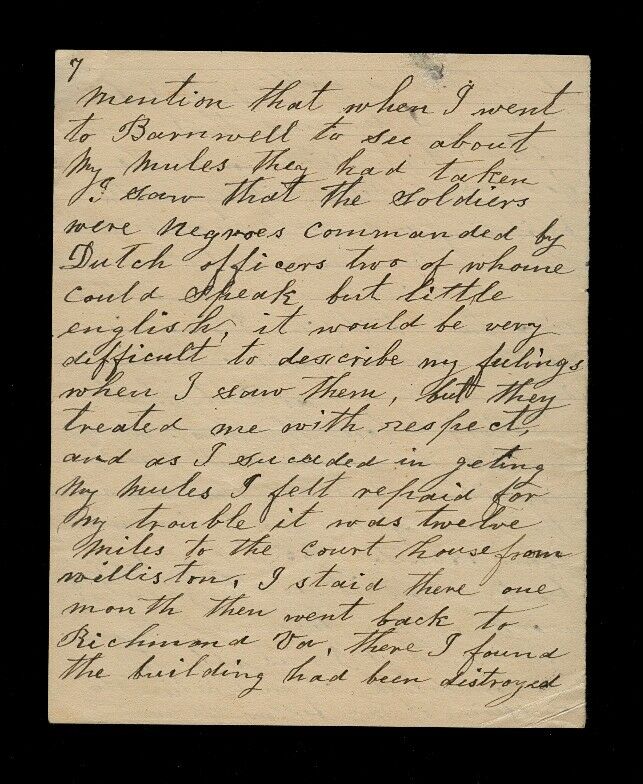 7
mention that when I went
to Barnwell to see about
my mules they had taken
I saw that the soldiers
were negroes commanded by
Dutch officers two of whome
could speak but little
english, it would be very
difficult to describe my feelings
when I saw them, but they
treated me with respect,
and as I succeded in geting
my mules I felt repaid for
my trouble it was twelve
miles to the court house from
williston, I staid there one
month then went back to
Richmond Va, there I found
the building had been distroyed